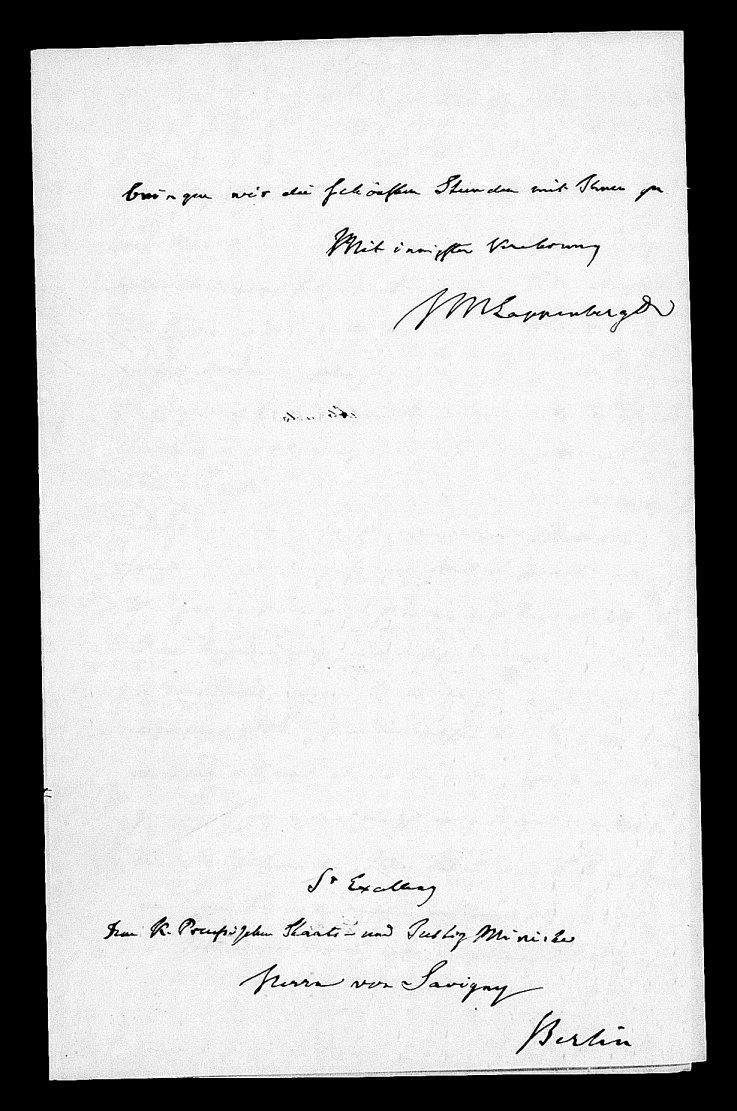 bringen wir die schönsten Stunden mit Ihnen zu
Mit innigster Verehrung
J M Lappenberg Dr
Sr Excellenz
dem K. Preußischen Staats- und Justiz Minister
Herrn von Savigny
Berlin